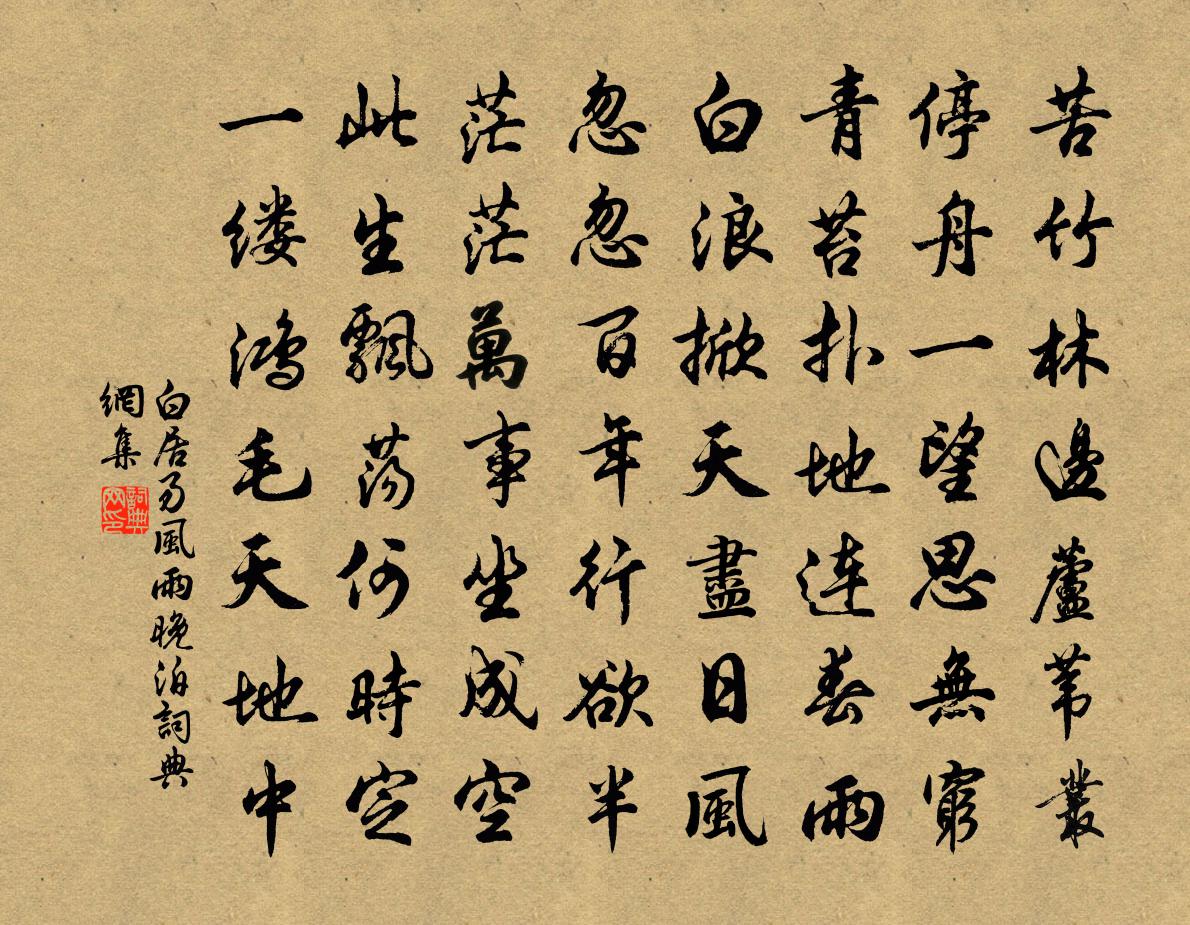 苦竹林邊蘆葦叢
停舟一望思無窮
青苔扑地连春雨
白浪掀天盡日風
忽忽百年行欲半
茫茫萬事坐成空
此生飄蕩何時定
一缕鸿毛天地中
白居易風雨晚泊詞典
網集
詞典
网印